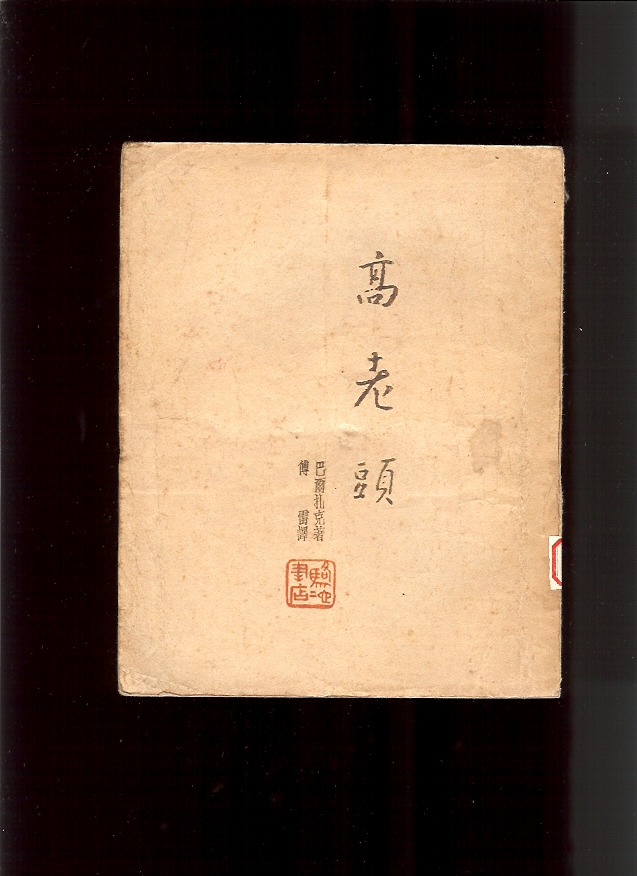 高老頭
巴爾扎克著
傅雷譯
駱駝書店